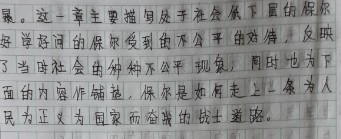 暴。这一章主要描写处于社会低下层的保尔
好学好问的保尔受到的不公平的对待，反映
了当时社会的种种不公平现象，同时也为下
面的内容作铺垫，保尔是如何走上一条为人
民为正义为国家而奋战的战士道路。